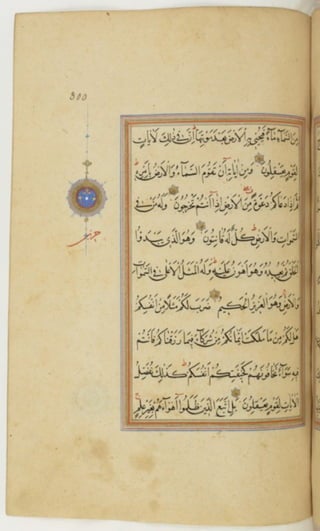 300
مِنَ السَّمَاءِ مَاءً فَيُحْيِي بِهِ الْأَرْضَ بَعْدَ مَوْتِهَا إِنَّ فِي ذَلِكَ لَآيَاتٍ
لِقَوْمٍ يَعْقِلُونَ وَمِنْ آيَاتِهِ أَنْ تَقُومَ السَّمَاءُ وَالْأَرْضُ بِأَمْرِهِ
ثُمَّ إِذَا دَعَاكُمْ دَعْوَةً مِنَ الْأَرْضِ إِذَا أَنْتُمْ تَخْرُجُونَ وَلَهُ مَنْ فِي
السَّمَوَاتِ وَالْأَرْضِ كُلٌّ لَهُ قَانِتُونَ وَهُوَ الَّذِي يَبْدَؤُا
الْخَلْقَ ثُمَّ يُعِيدُهُ وَهُوَ أَهْوَنُ عَلَيْهِ وَلَهُ الْمَثَلُ الْأَعْلَى فِي السَّمَوَاتِ
وَالْأَرْضِ وَهُوَ الْعَزِيزُ الْحَكِيمُ ضَرَبَ لَكُمْ مَثَلًا مِنْ أَنْفُسِكُمْ
هَلْ لَكُمْ مِنْ مَا مَلَكَتْ أَيْمَانُكُمْ مِنْ شُرَكَاءَ فِيمَا رَزَقْنَاكُمْ فَأَنْتُمْ
فِيهِ سَوَاءٌ تَخَافُونَهُمْ كَخِيفَتِكُمْ أَنْفُسَكُمْ كَذَلِكَ نُفَصِّلُ
الْآيَاتِ لِقَوْمٍ يَعْقِلُونَ بَلِ اتَّبَعَ الَّذِينَ ظَلَمُوا أَهْوَاءَهُمْ بِغَيْرِ عِلْمٍ